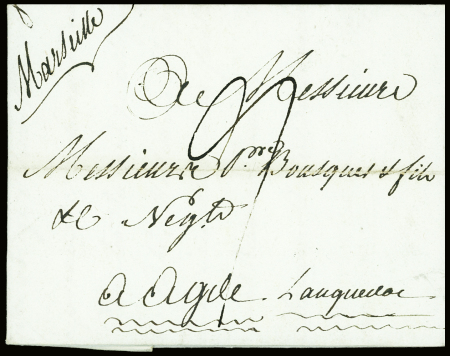 Marseille
A Messieurs
Messieurs P.re Bousquet & fils
& C Negts
a Agde Languedoc